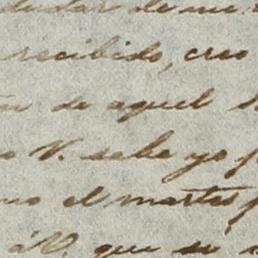 dudar de me
recibido, creo
de aquel
V. sabe yo
el martes
á V. que se